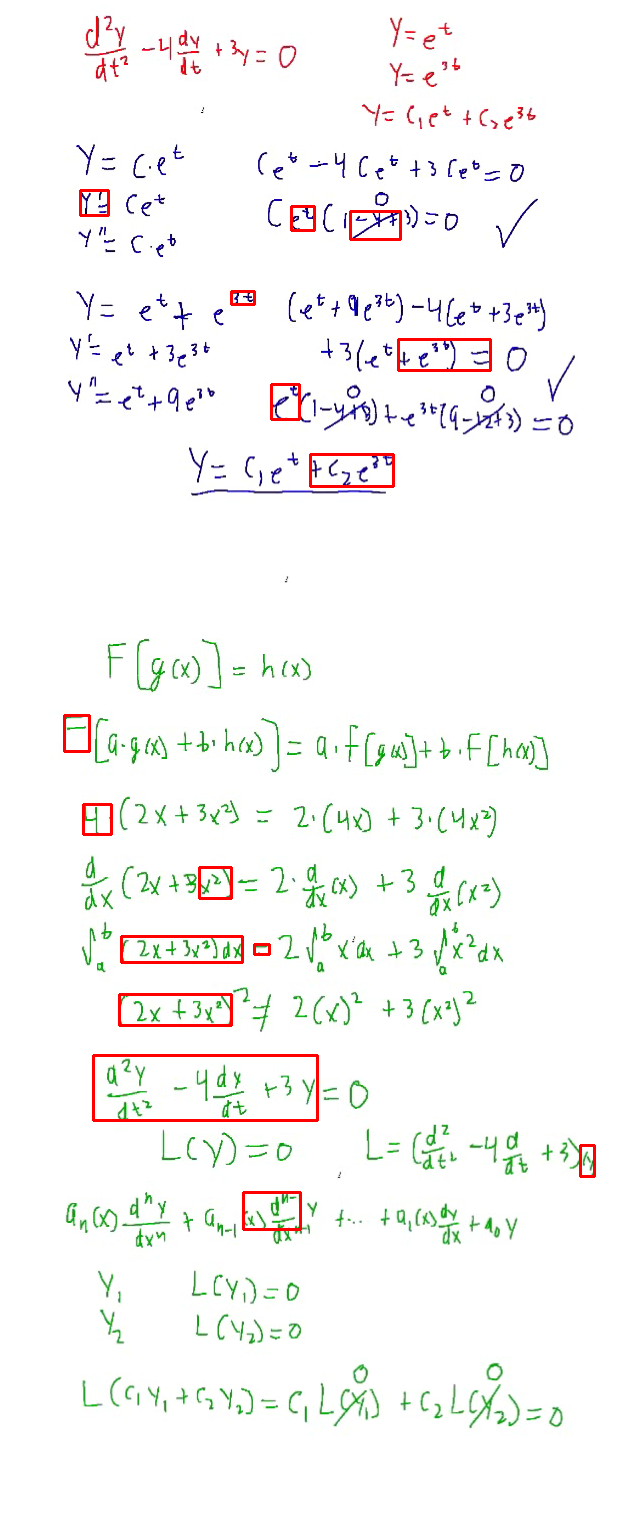 d²y/dt² - 4 dy/dt + 3y = 0
y = e^t
y = e^{3t}
y = c₁e^t + c₂e^{3t}
y = c·e^t
y' = ce^t
y'' = c·e^t
ce^t - 4ce^t + 3ce^t = 0
ce^t(1-4+3) = 0 ✓
0
y = e^t + e^{3t}
y' = e^t + 3e^{3t}
y'' = e^t + 9e^{3t}
(e^t + 9e^{3t}) - 4(e^t + 3e^{3t})
+3(e^t + e^{3t}) = 0
0 0
e^t(1-4+3) + e^{3t}(9-12+3) = 0 ✓
y = c₁e^t + c₂e^{3t}
F[g(x)] = h(x)
[a·g(x) + b·h(x)] = a·F[g(x)] + b·F[h(x)]
4(2x + 3x²) = 2·(4x) + 3·(4x²)
d/dx (2x + 3x²) = 2·d/dx(x) + 3 d/dx(x²)
∫_a^b (2x + 3x²)dx = 2∫_a^b x dx + 3∫_a^b x² dx
(2x + 3x²)² ≠ 2(x)² + 3(x²)²
d²y/dt² - 4 dy/dt + 3y = 0
L(y) = 0
L = (d²/dt² - 4 d/dt + 3)y
a_n(x) d^n y/dx^n + a_{n-1}(x) d^{n-1}/dx^{n-1} y + ... + a₁(x) dy/dx + a₀y
y₁ L(y₁) = 0
y₂ L(y₂) = 0
0 0
L(c₁y₁ + c₂y₂) = c₁L(y₁) + c₂L(y₂) = 0